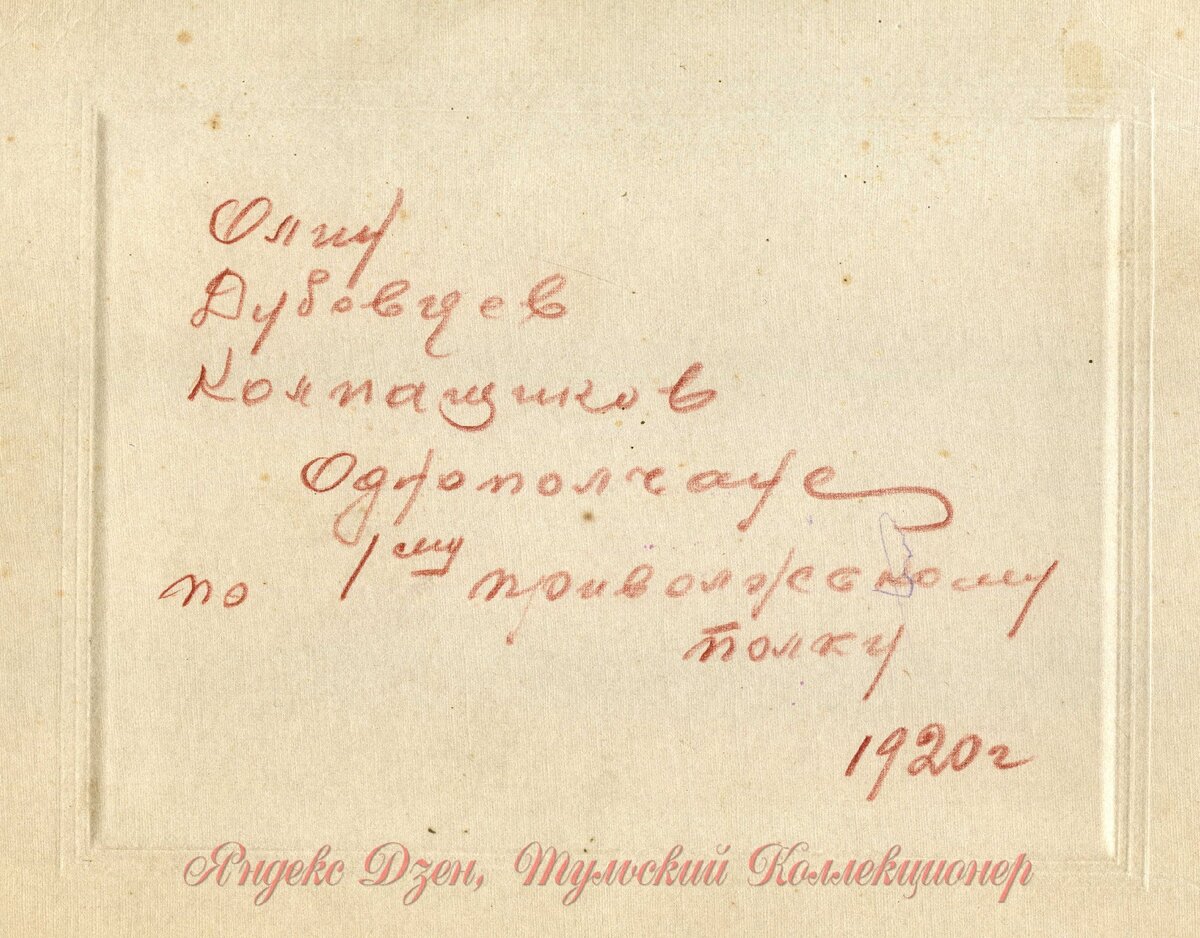 Дубовцев
Колпащиков
Однополчане
по 1му приволжскому
полку
1920г
Яндекс Дзен, Тульский Коллекционер